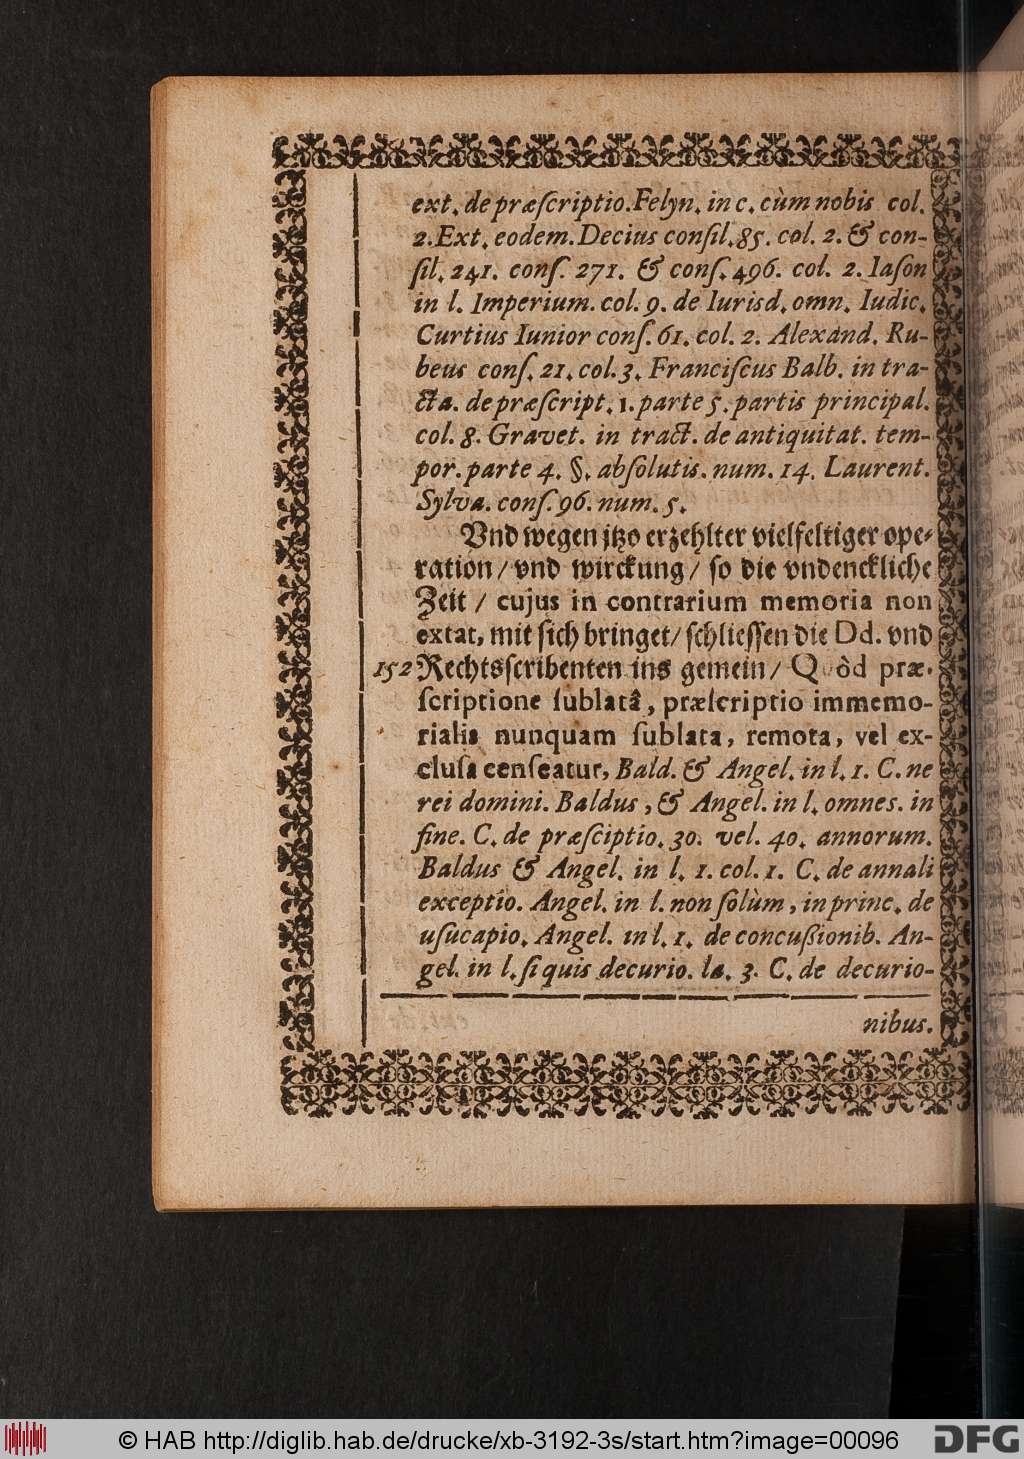 ext. de præſcriptio. Felyn. in c. cùm nobis col.
2. Ext. eodem. Decius conſil. 85. col. 2. & con-
ſil. 241. conſ. 271. & conſ. 496. col. 2. Iaſon
in l. Imperium. col. 9. de Iurisd. omn. Iudic.
Curtius Iunior conſ. 61. col. 2. Alexand. Ru-
beus conſ. 21. col. 3. Franciſcus Balb. in tra-
cta. de præſcript. 1. parte 5. partis principal.
col. 8. Gravet. in tract. de antiquitat. tem-
por. parte 4. §. abſolutis. num. 14. Laurent.
Sylva. conſ. 96. num. 5.
Vnd wegen jtzo erzehlter vielfeltiger ope-
ration / vnd wirckung / ſo die vndenckliche
Zeit / cujus in contrarium memoria non
extat, mit ſich bringet / ſchlieſſen die Dd. vnd
152 Rechtsſcribenten ins gemein / Quòd præ-
ſcriptione ſublatâ, præſcriptio immemo-
rialis nunquam ſublata, remota, vel ex-
cluſa cenſeatur, Bald. & Angel. in l. 1. C. ne
rei domini. Baldus, & Angel. in l. omnes. in
fine. C. de præſciptio. 30. vel. 40. annorum.
Baldus & Angel. in l. 1. col. 1. C. de annali
exceptio. Angel. in l. non ſolùm, in princ. de
uſucapio. Angel. in l. 1. de concußionib. An-
gel. in l. ſi quis decurio. la. 3. C. de decurio-
nibus.
© HAB http://diglib.hab.de/drucke/xb-3192-3s/start.htm?image=00096
DFG